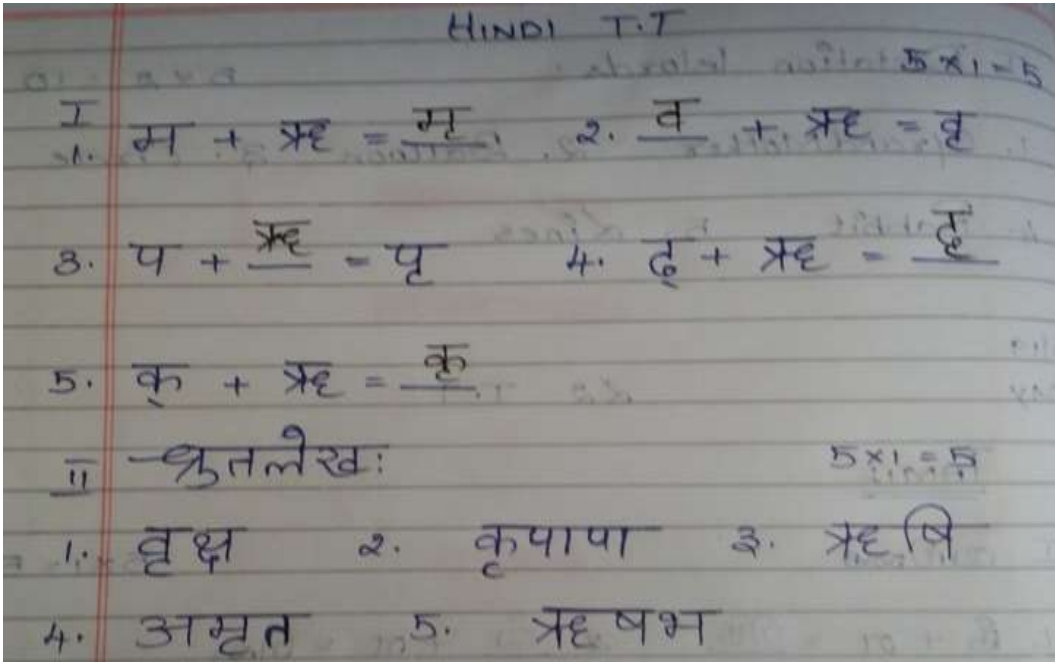 HINDI T.T
5×1=5
I
1. म + ऋ = मृ 2. व + ऋ = वृ
3. प + ऋ = पृ 4. द् + ऋ = दृ
5. क् + ऋ = कृ
II श्रुतलेखः 5×1=5
1. वृक्ष 2. कृपाण 3. ऋषि
4. अमृत 5. ऋषभ